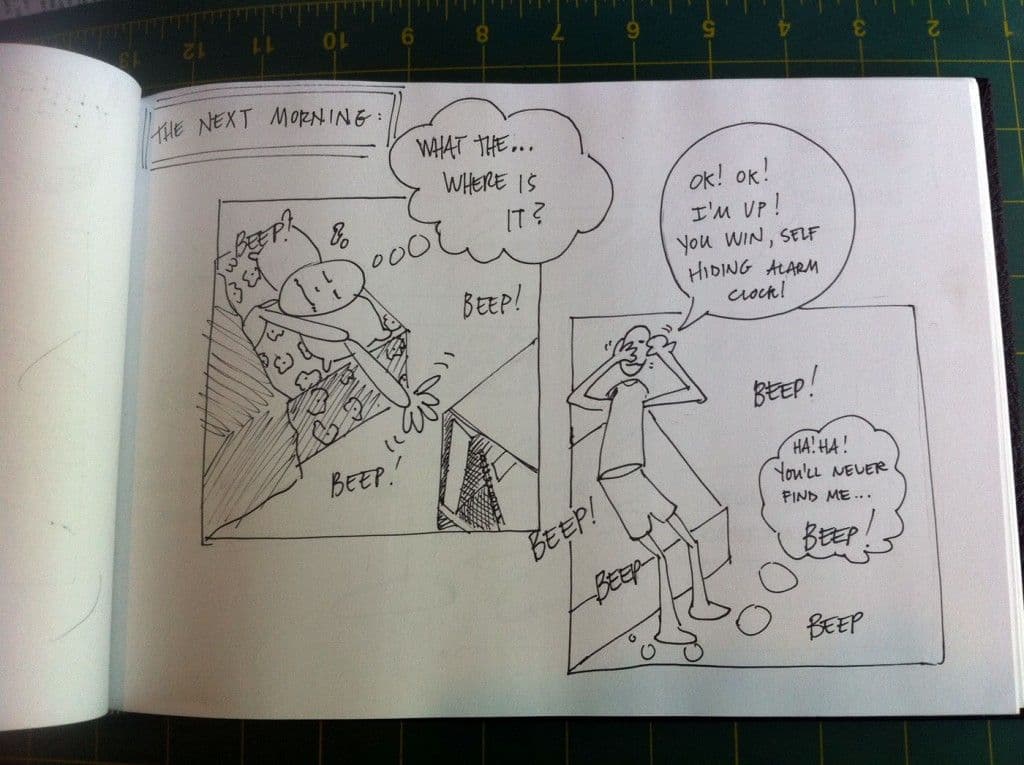 13 12 11 10 9 8 7 6 5 4 3 2 1
THE NEXT MORNING:
WHAT THE...
WHERE IS
IT?
BEEP!
BEEP!
BEEP!
OK! OK!
I'M UP!
YOU WIN, SELF
HIDING ALARM
CLOCK!
BEEP!
HA! HA!
YOU'LL NEVER
FIND ME...
BEEP!
BEEP!
BEEP
BEEP